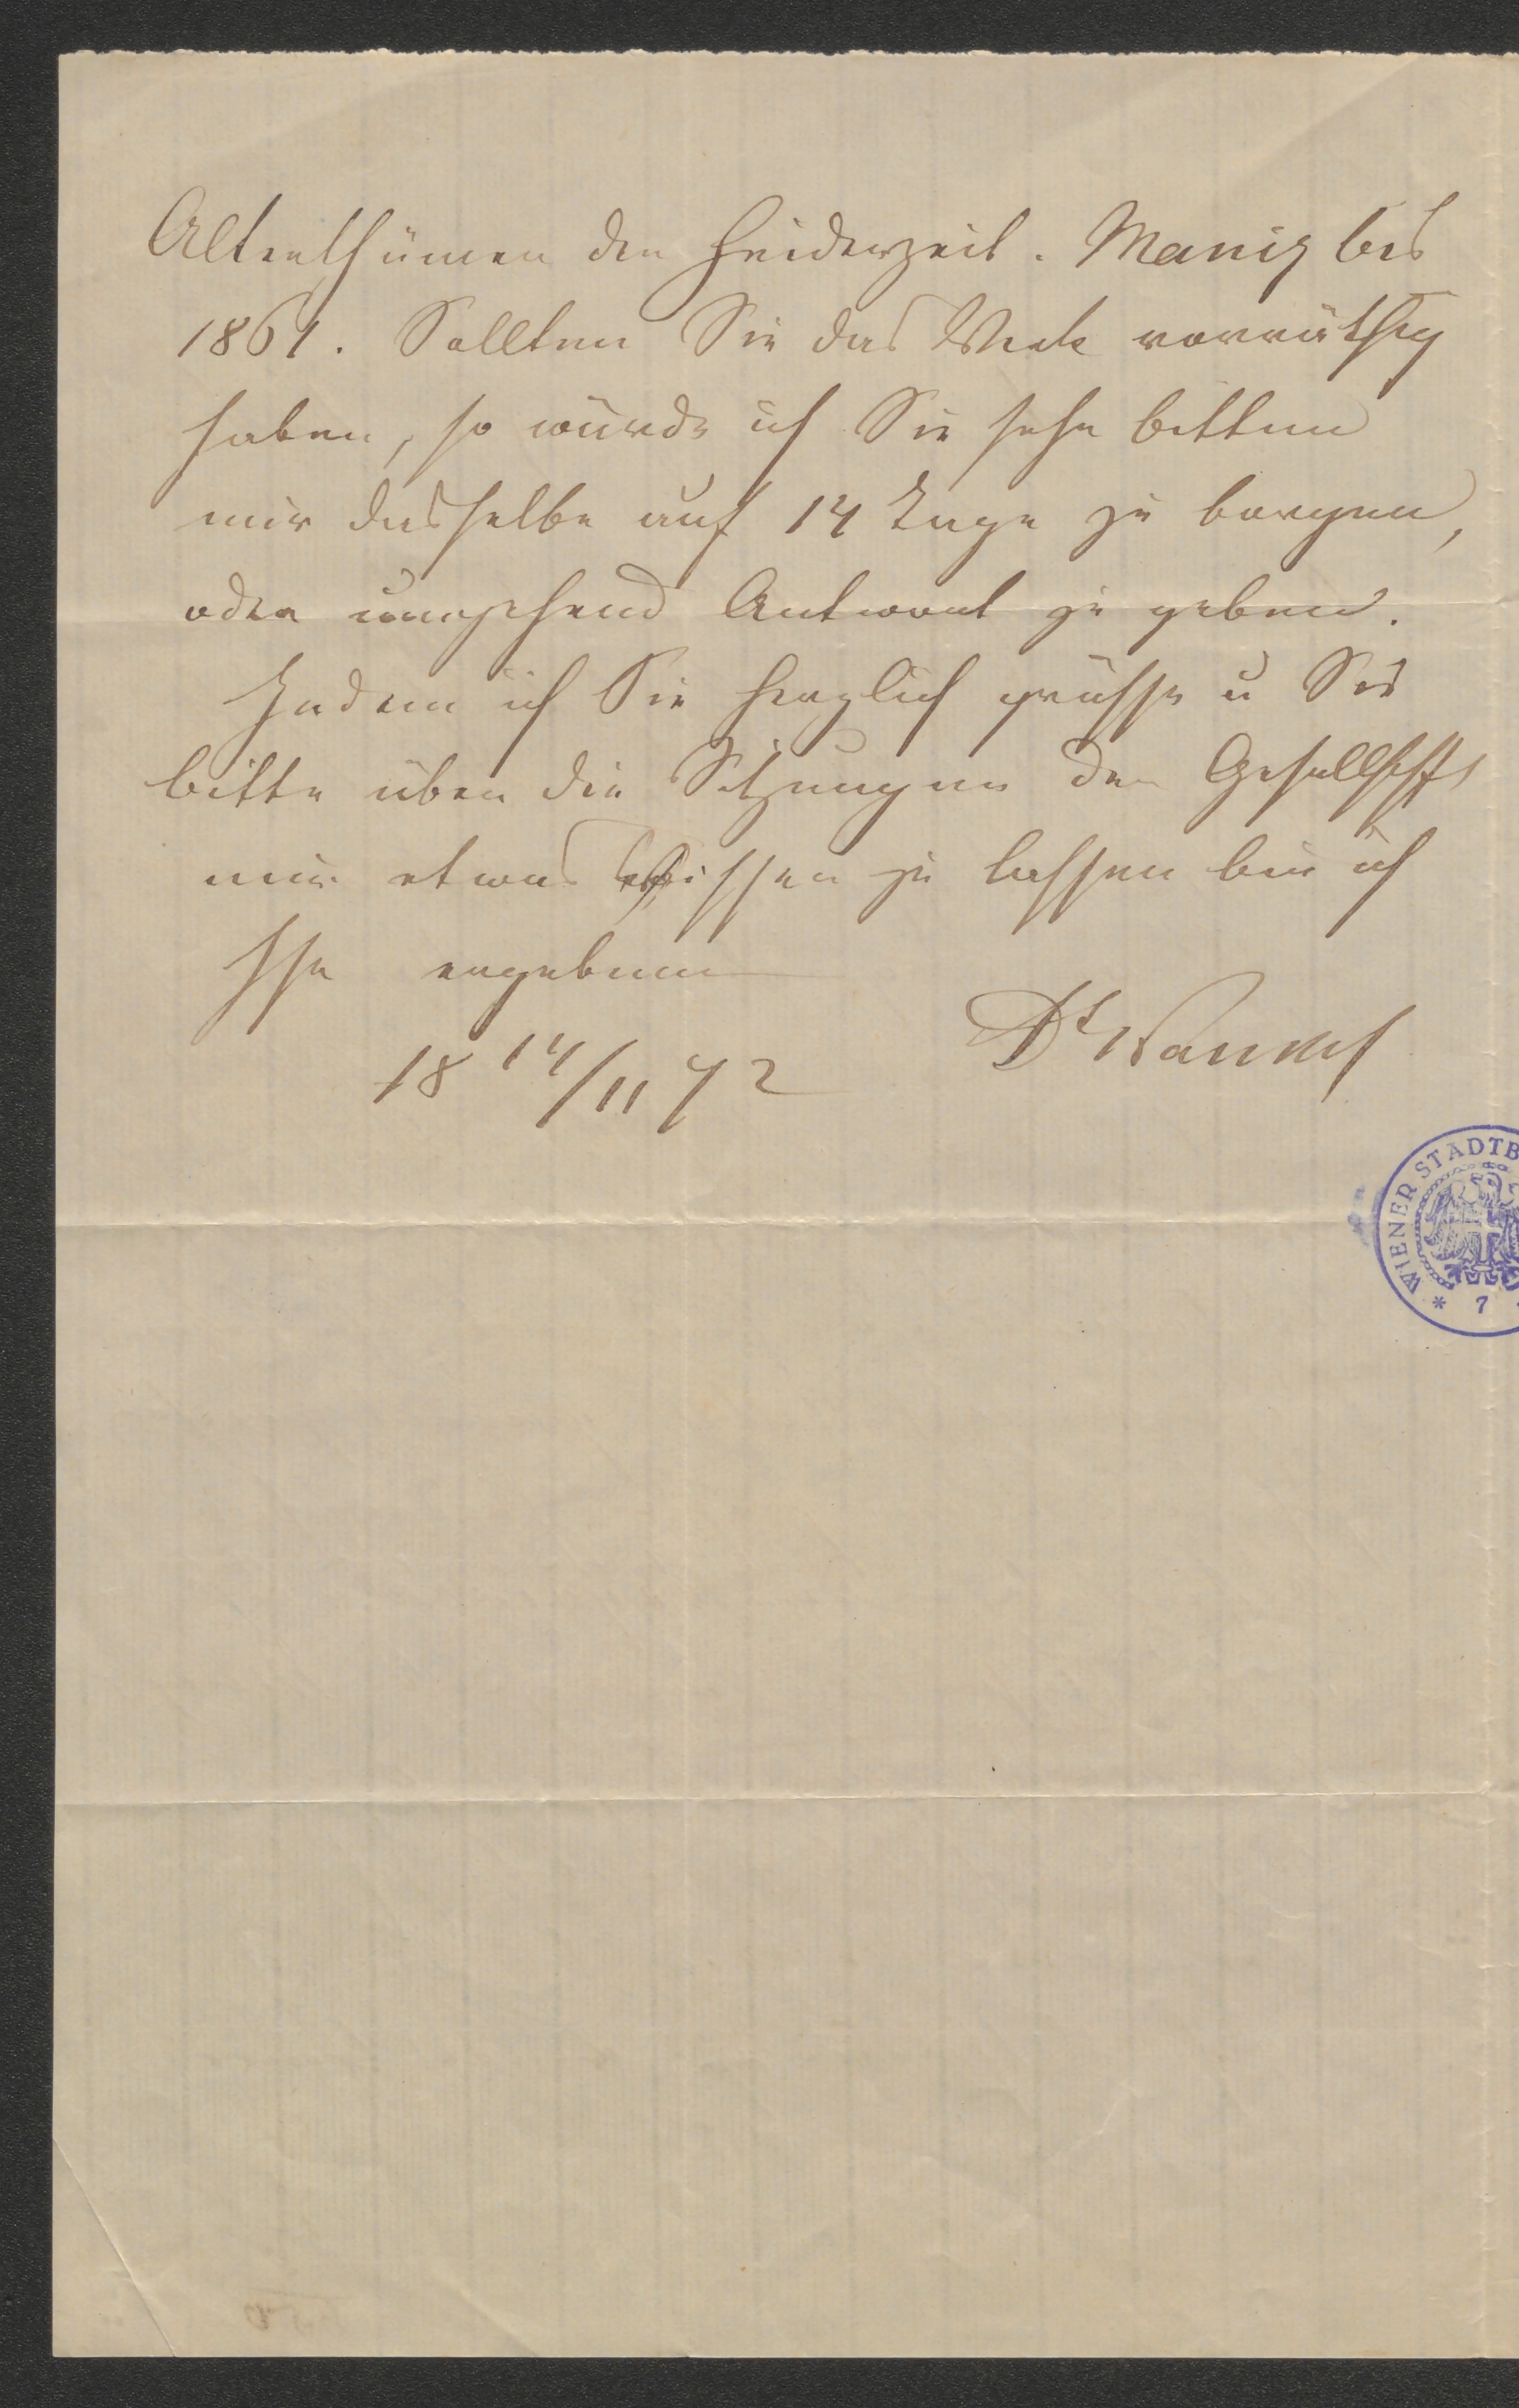 Alterthümer der Heidenzeit. Manig bis
1861. Sollten Sie das Werk vorräthig
haben, so würde ich Sie sehr bitten
mir dasselbe auf 14 Tage zu borgen,
oder umgehend Antwort zu geben.
Indem ich Sie herzlich grüsse u Sie
bitte über die Sitzungen der Gesellschft
mir etwas wissen zu lassen bin ich
Ihr ergebener
18 14/11 72
Dr Wankel
WIENER STADTB
* 7